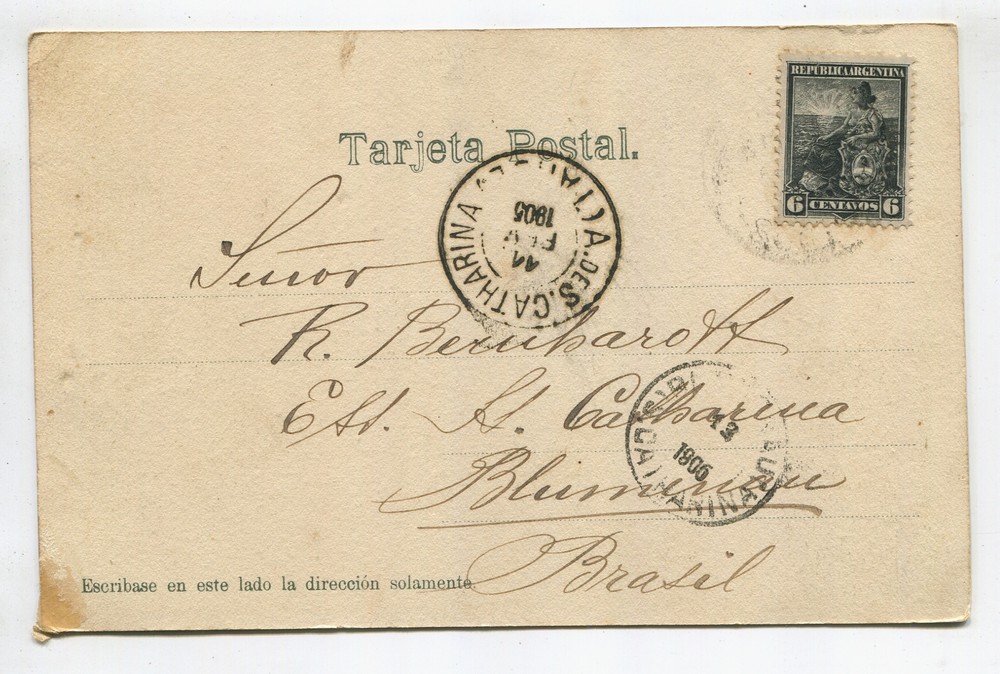 REPÚBLICA ARGENTINA
6 CENTAVOS 6
Tarjeta Postal.
A. DE S. CATHARINA
11
FEV
1905
Señor
R. Bernhardt
Est. St. Catharina
Blumenau
Brasil
13
1906
CATHARINA
Escribase en este lado la dirección solamente.